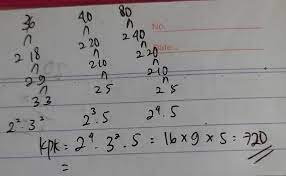 36 40 80
No.
2 18 2 20 2 40
Date.
2 9 2 10 2 20
3 3 2 5 2 10
2 5
2² · 3² 2³ · 5 2⁴ · 5
KPK = 2⁴ · 3² · 5 = 16 × 9 × 5 = 720
=